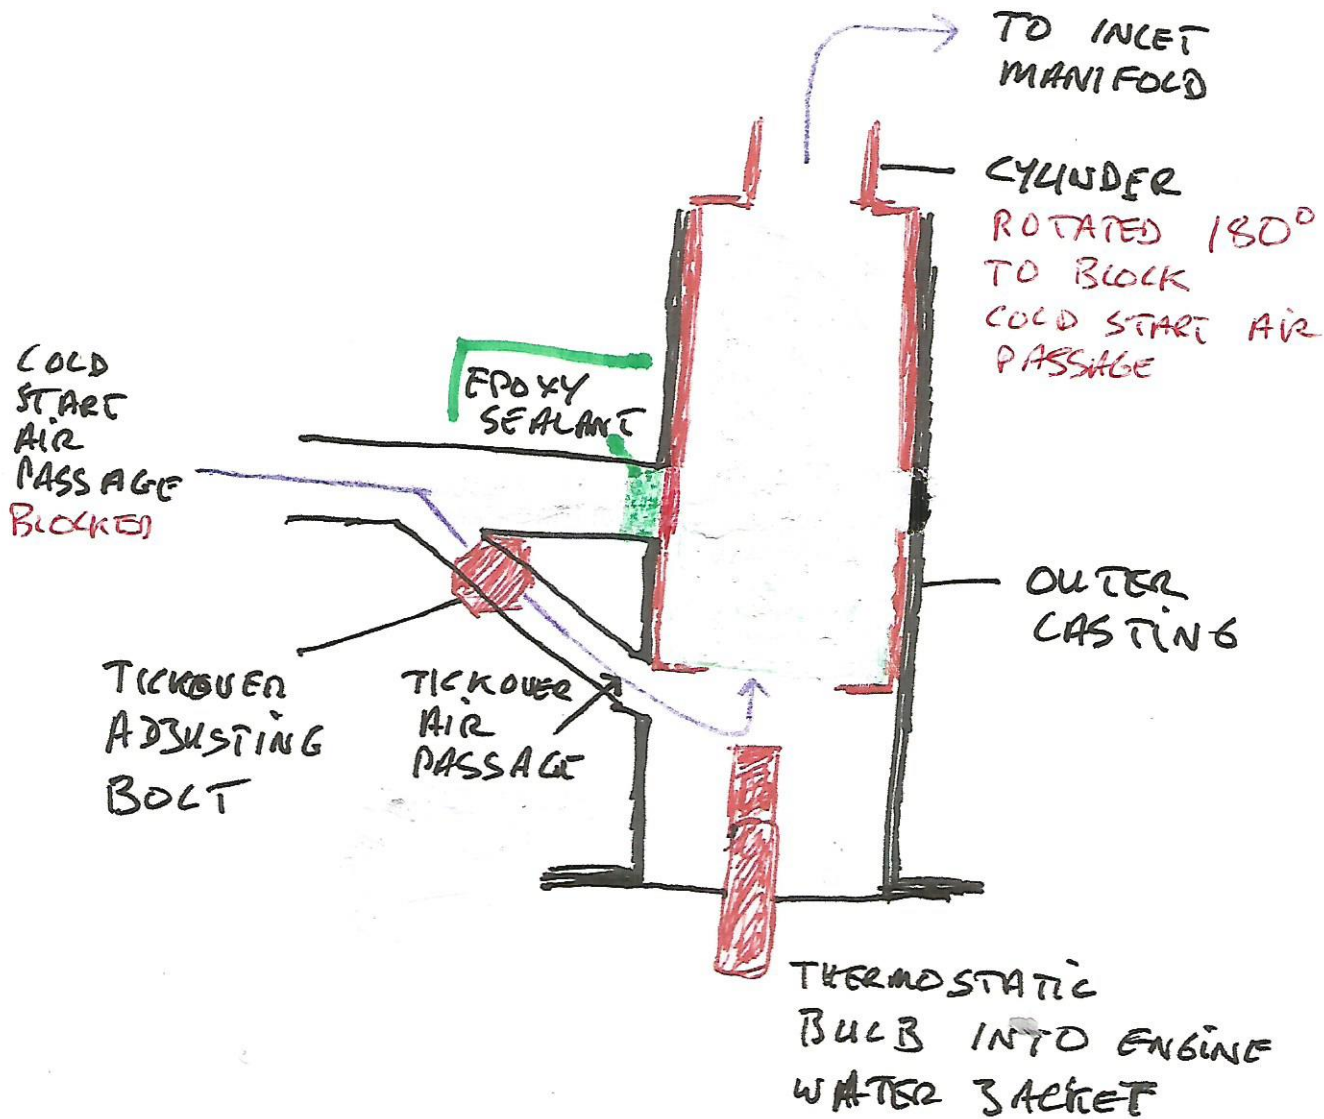 TO INLET
MANIFOLD
CYLINDER
ROTATED 180°
TO BLOCK
COLD START AIR
PASSAGE
COLD
START
AIR
PASSAGE
BLOCKED
EPOXY
SEALANT
OUTER
CASTING
TICKOVER
ADJUSTING
BOLT
TICKOVER
AIR
PASSAGE
THERMOSTATIC
BULB INTO ENGINE
WATER JACKET